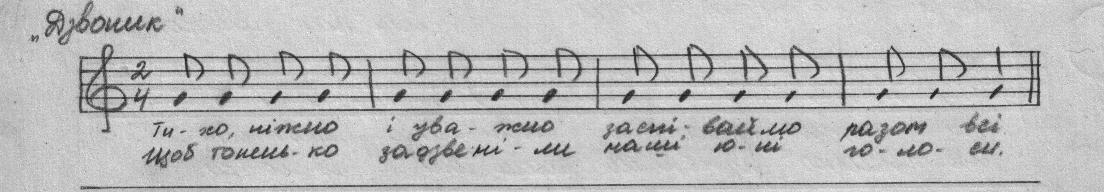 „Дзвоник“
2
4
Ти-хо, ніжно і ува-жно заспі-ваймо разом всі
Щоб тонень-ко задзвені-ли наші ю-ні го-ло-си.